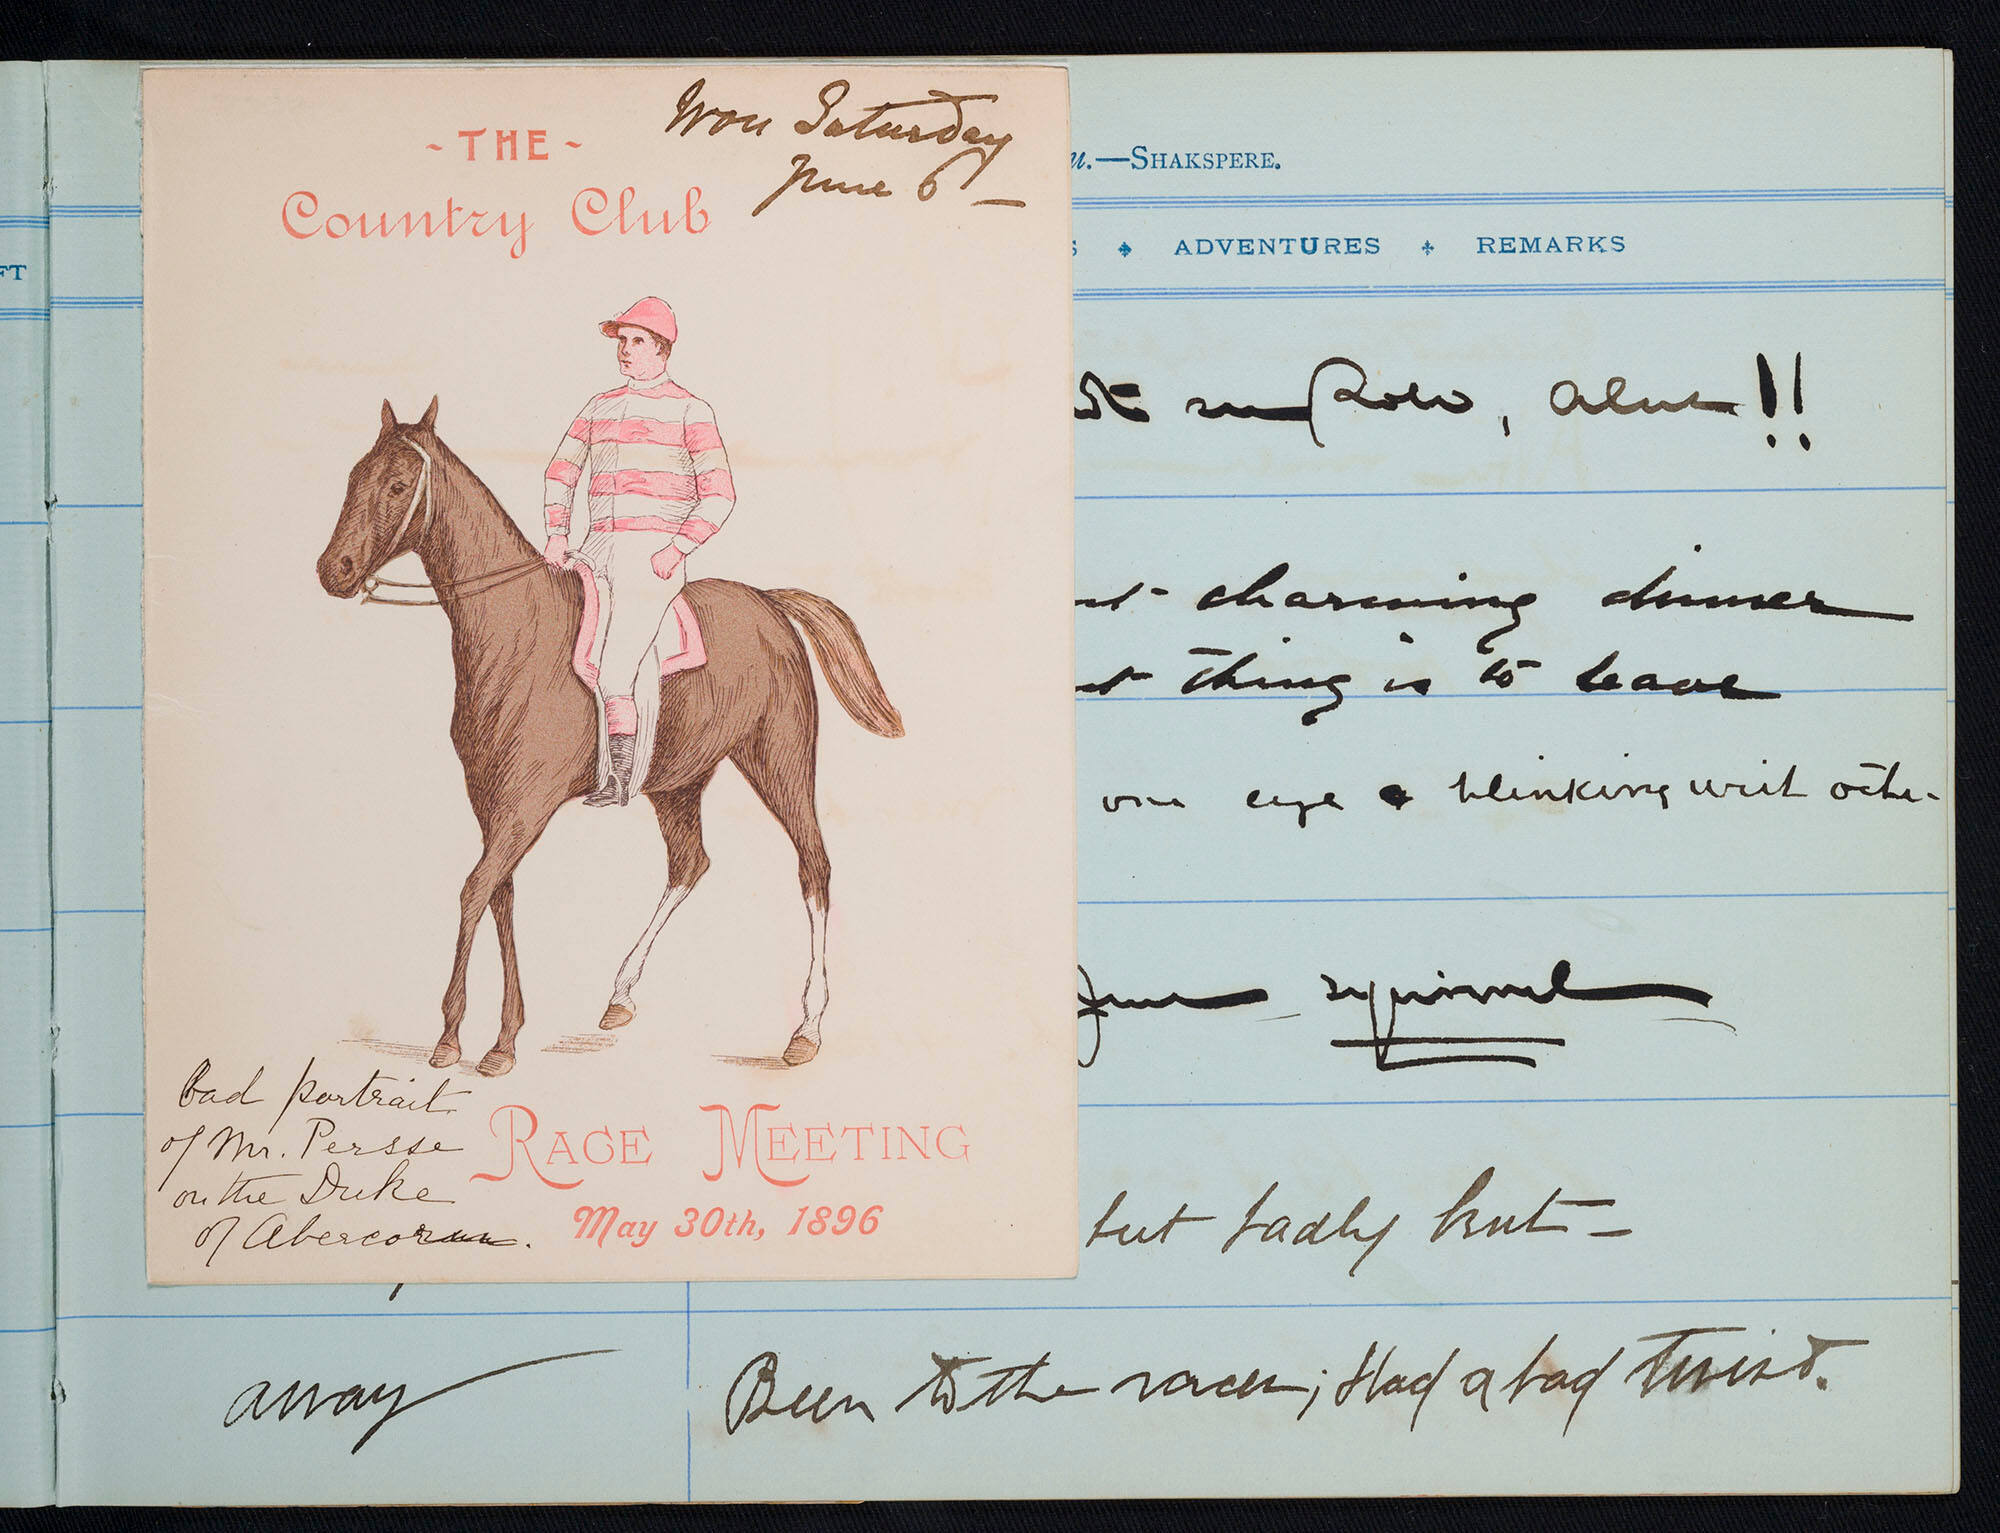 - THE -
Country Club
Won Saturday
June 6 –
bad portrait
of Mr. Persse
on the Duke
of Abercorn.
RACE MEETING
May 30th, 1896
.—SHAKSPERE.
FT
S ✦ ADVENTURES ✦ REMARKS
!!
charming dinner
thing is to leave
one eye & blinking with other
squirrel
but badly hurt –
away
Been to the races; Had a bad twist.